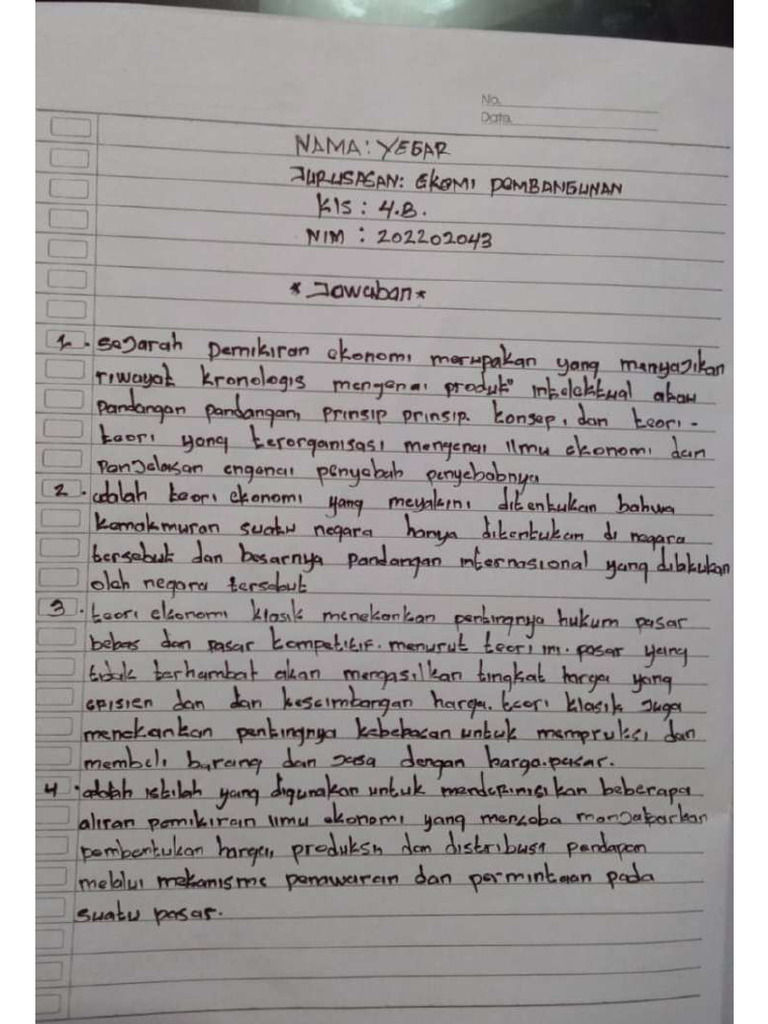 No.
Data.
NAMA: YEGAR
JURUSASAN: EKOMI POMBANGUNAN
Kls : 4.B.
NIM : 202202043
* Jawaban *
1. sejarah pemikiran ekonomi merupakan yang menyajikan
riwayat kronologis mengenai produk" intelektual atau
Pandangan pandangan, prinsip prinsip. konsep, dan teori-
teori yang terorganisasi mengenai ilmu ekonomi dan
Panjelasan engenai penyabab penyebabnya
2. adalah teori ekonomi yang meyakini ditentukan bahwa
kemakmuran suatu negara hanya ditentukan di negara
tersebut dan besarnya pandangan internasional yang dilakukan
olah negara tersebut
3. teori ekonomi klasik menekankan pentingnya hukum pasar
bebas dan pasar kompetitif. menurut teori ini. pasar yang
tidak terhambat akan mengasilkan tingkat harga yang
episien dan dan keseimbangan harga. teori klasik juga
menekankan pentingnya kebebasan untuk mempruksi dan
membeli barang dan jasa dengan harga.pasar.
4. adalah istilah yang digunakan untuk mendepinisikan beberapa
aliran pemikirain ilmu ekonomi yang mencoba manjabarkan
pembentukan harga, produksn dan distribusi pendapan
melalui mekanisme penawaran dan permintaan pada
suatu pasar.